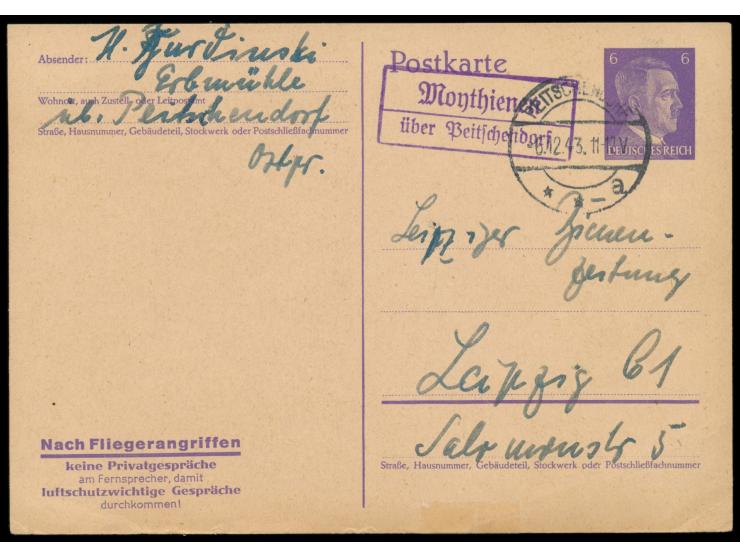 Absender: H. Jurdinski
Erbmühle
Wohnort, auch Zustell- oder Leitpostamt
üb. Peitschendorf
Straße, Hausnummer, Gebäudeteil, Stockwerk oder Postschließfachnummer
Ostpr.
Nach Fliegerangriffen
keine Privatgespräche
am Fernsprecher, damit
luftschutzwichtige Gespräche
durchkommen!
Postkarte
6 6
DEUTSCHES REICH
Moythienen
über Peitschendorf
PEITSCHENDORF
6.12.43. 11-12V
* * – a
Leipziger Bienen-
zeitung
Leipzig C1
Salomonstr 5
Straße, Hausnummer, Gebäudeteil, Stockwerk oder Postschließfachnummer